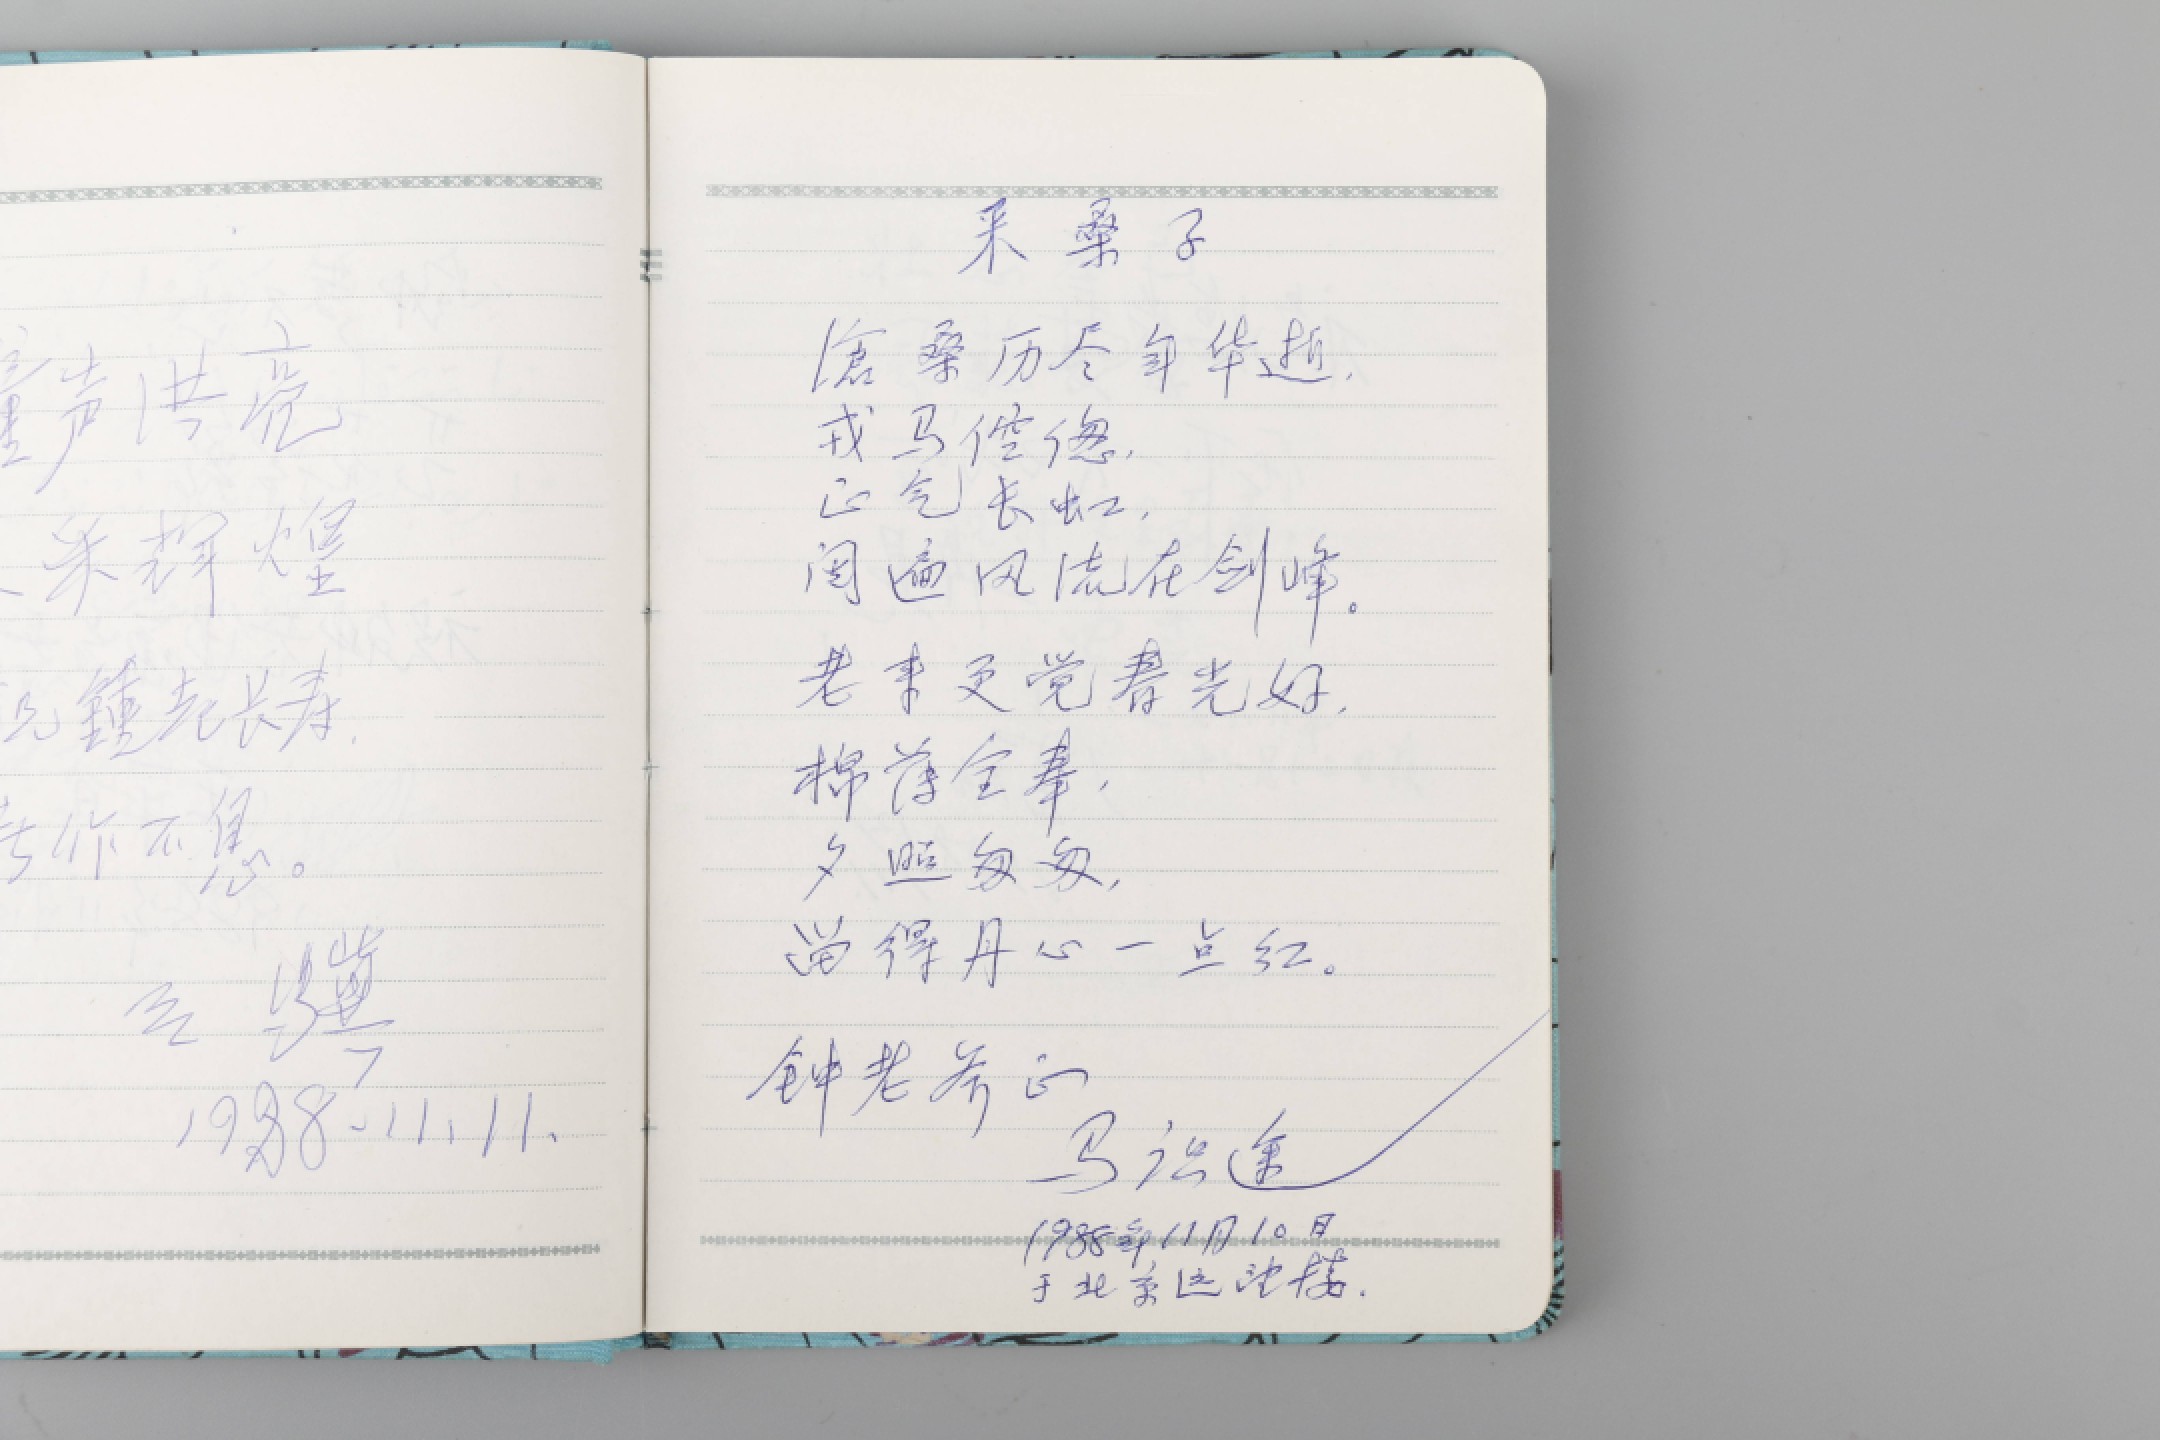 童声洪亮
采辉煌
祝鍾老长寿,
作不息。
1988.11.11.
采桑子
滄桑历尽年华逝,
戎马倥偬,
正气长虹,
阅遍风流在剑峰。
老来更觉春光好,
棉薄全奉,
夕照匆匆,
留得丹心一点红。
钟老斧正
马识途
1988年11月10日
于北京远望楼.